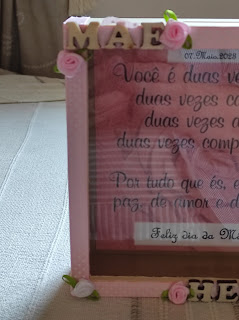 MAE
07. Maio. 202
Você é duas ve
duas vezes c
duas vezes a
duas vezes comp
Por tudo que és, e
paz, de amor e d
Feliz dia da Mã
HE